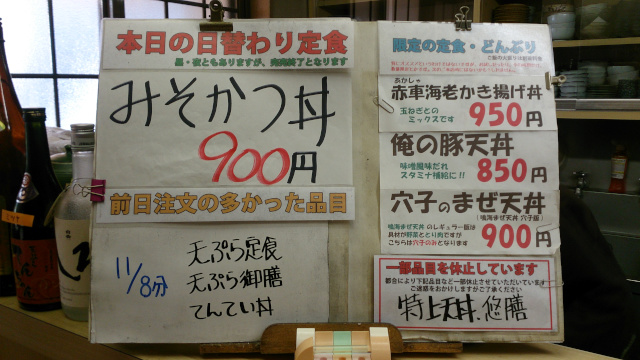 本日の日替わり定食
昼・夜ともありますが、完売終了となります
みそかつ丼
900円
前日注文の多かった品目
11/8分
天ぷら定食
天ぷら御膳
てんてい丼
限定の定食・どんぶり
あかしゃ
赤車海老かき揚げ丼
玉ねぎとの
ミックスです
950円
俺の豚天丼
味噌風味だれ
スタミナ補給に!!
850円
穴子のまぜ天丼
(鳴海まぜ天丼 穴子版)
鳴海まぜ天丼 のレギュラー版は
具材が野菜ととり肉ですが
こちらは穴子のみとなります
900円
一部品目を休止しています
都合により下記品目など一部休止させていただいています
ご迷惑をおかけしますがご了承ください
特上天丼、悠膳